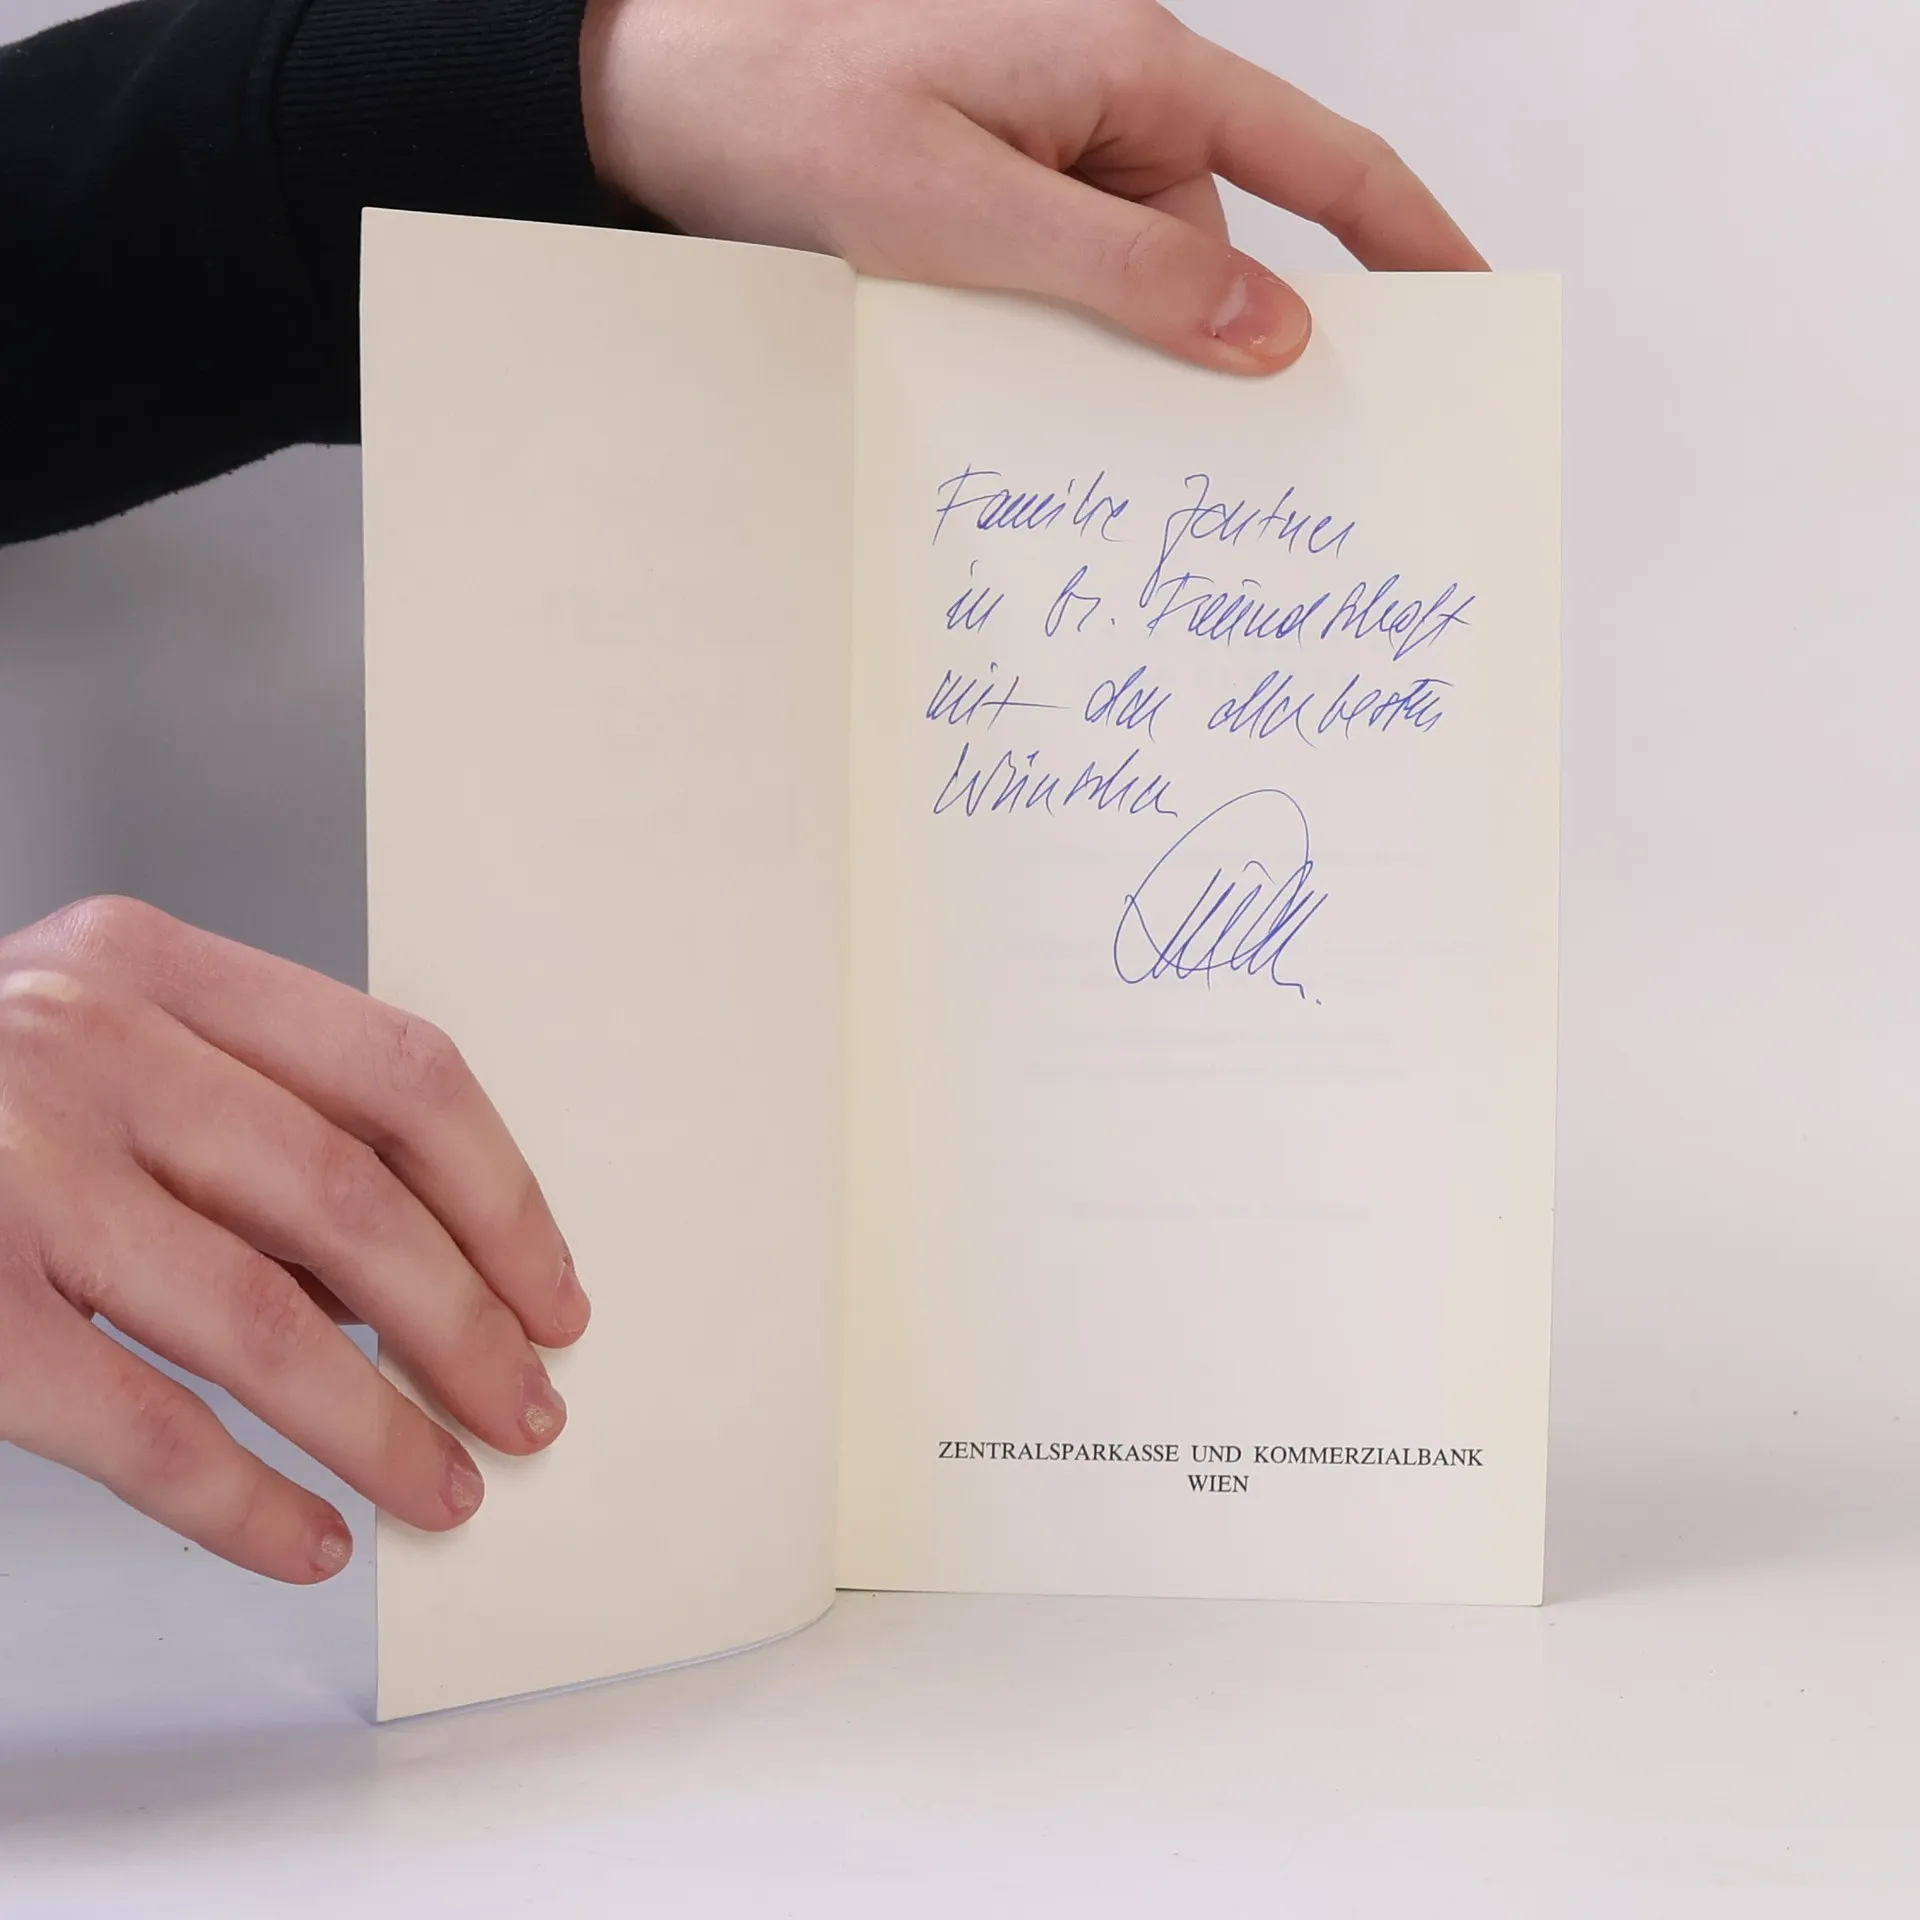 Familie
in br. Freundschaft
mit den allerbesten
Wünschen
ZENTRALSPARKASSE UND KOMMERZIALBANK
WIEN